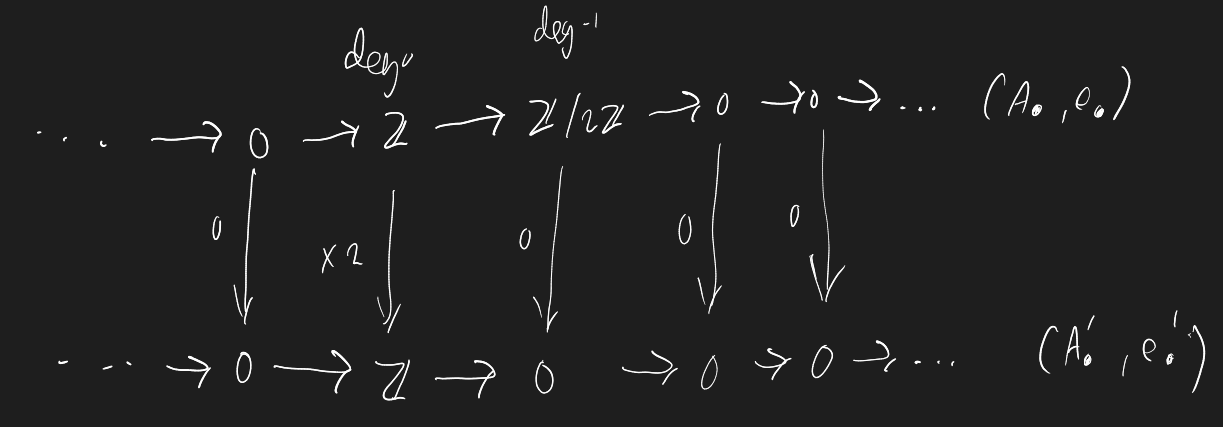 deg 0 deg -1
... → 0 → ℤ → ℤ/2ℤ → 0 → 0 → ... (A• , e•)
0 ×2 0 0 0
... → 0 → ℤ → 0 → 0 → 0 → ... (A'• , e'•)